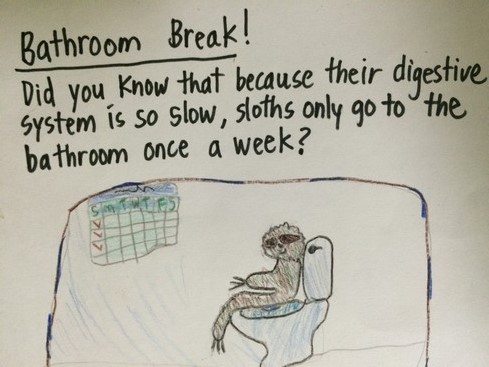 Bathroom Break!
Did you know that because their digestive
system is so slow, sloths only go to the
bathroom once a week?
S M T W T F S